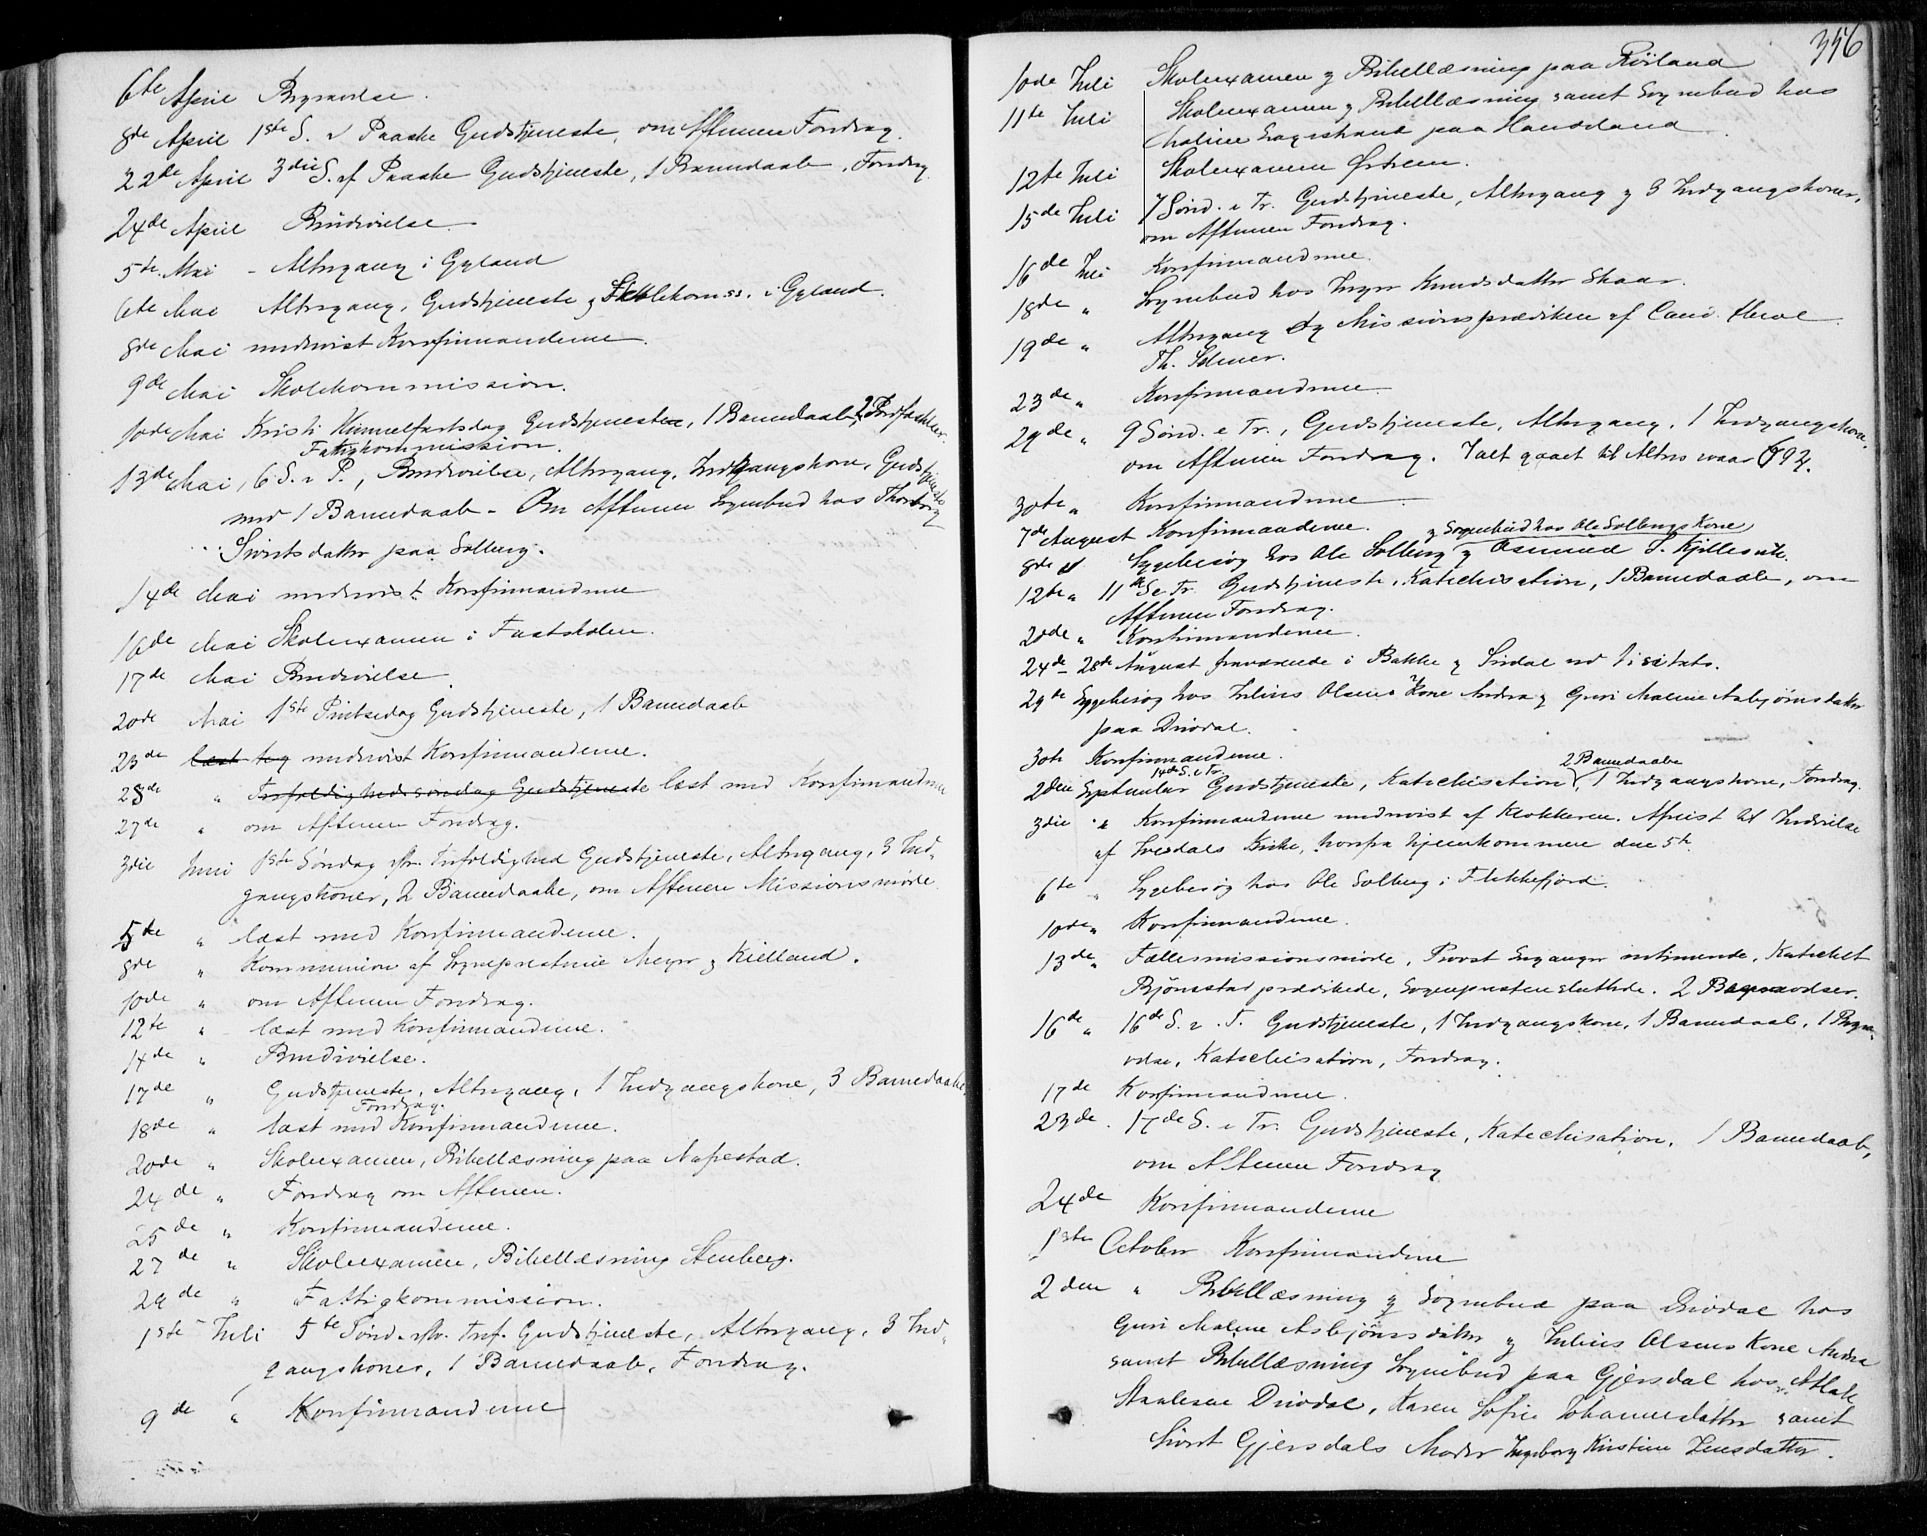 6te April Begravelse.
8de April 1ste S. e Paaske Gudstjeneste, om Aftenen Foredrag.
22de April 3die S. ef Paaske Gudstjeneste, 1 Barnedaab, Foredrag.
24de April Brudevielse.
5te Mai - Altergang i Gyland
6te Mai Altergang, Gudstjeneste og Skolekomss. i Gyland.
8de Mai undervist Konfirmanderne.
9de Mai Skolekommission.
10de Mai Kristi Himmelfartsdag Gudstjeneste, 1 Barnedaab, 2 Jordfæstelser.
Fattigkommission.
13de Mai, 6 S. e P., Brudevielse, Altergang, Indgangskone, Gudstjeneste
med 1 Barnedaab - Om Aftenen Sognebud hos Thorborg
Sivertsdatter paa Solberg.
14de Mai undervist Konfirmanderne
16de Mai Skolexamen i Fastskolen.
17de Mai Brudevielse.
20de Mai 1ste Pintsedag Gudstjeneste, 1 Barnedaab
23de læst og undervist Konfirmanderne.
28de " Trefoldighedssøndag Gudstjeneste læst med Konfirmanderne
27de " om Aftenen Foredrag.
3die Juni 1ste Søndag eftr. Trefoldighed Gudstjeneste, Altergang, 3 Ind-
gangskoner, 2 Barnedaabe, om Aftenen Missionsmøde.
5te " læst med Konfirmanderne.
8de " Kommunion af Sognepresterne Meyer og Kielland.
10de " om Aftenen Foredrag.
12te " læst med Konfirmanderne.
14de " Brudevielse.
17de " Gudstjeneste, Altergang, 1 Indgangskone, 3 Barnedaabe,
Foredrag.
18de " læst med Konfirmanderne.
20de " Skolexamen, Bibellæsning paa Napestad.
24de " Foredrag om Aftenen.
25de " Konfirmanderne.
27de " Skolexamen, Bibellæsning Stenberg.
29de " Fattigkommission.
1ste Juli 5te Sønd. eftr. Tref. Gudstjeneste, Altergang, 3 Ind-
gangskoner, 1 Barnedaab, Foredrag.
9de " Konfirmanderne
356
10de Juli Skolexamen og Bibellæsning paa Røiland
11te Juli Skolexamen og Bibellæsning samt Sognebud hos
Maline paa
12te Juli Skolexamen Østrem.
15de Juli 7 Sønd. e Tr. Gudstjeneste, Altergang og 3 Indgangskoner,
om Aftenen Foredrag.
16de Juli Konfirmanderne.
18de " Sognebud hos Inger Knudsdatter Skaar.
19de " Altergang og Missionsprædiken af Cand. theol.
Th.
23de " Konfirmanderne.
29de " 9 Sønd. e Tr., Gudstjeneste, Altergang, 1 Indgangskone,
om Aftenen Foredrag. Ialt gaaet til Alters iaar 692.
30te " Konfirmanderne
7de August Konfirmanderne. og Sognebud hos Ole Solbergs Kone
8de " Sygebesøg hos Ole Solberg og Osmund S.
12te " 11te S e Tr. Gudstjeneste, Katechisation, 1 Barnedaab, om
Aftenen Foredrag.
20de " Konfirmanderne.
24de - 28de August fraværende i Bakke og Sirdal ved Visitats.
29de Sygebesøg hos Julius Olsens Kone Andrea og Guri Maline Asbjørnsdatter
paa Drivdal.
30te Konfirmanderne.
14de S. e Tr. 2 Barnedaabe
2den September Gudstjeneste, Katechisation, 1 Indgangskone, Foredrag.
3die " Konfirmanderne undervist af Klokkeren. Afreist til Indvielse
af Tvedals Kirke, hvorfra hjemkommen den 5te.
6te " Sygebesøg hos Ole Solberg i Flekkefjord.
10de " Konfirmanderne.
13de " Fællesmissionsmøde, Provst intimerede, Katechet
Bjønestad prædikede, Sognepresten sluttede. 2 Begravelser.
16de " 16de S. e. T. Gudstjeneste, 1 Indgangskone, 1 Barnedaab, 1 Begra-
velse, Katechisation, Foredrag.
17de Konfirmanderne.
23de. 17de S. e Tr. Gudstjeneste, Katechisation, 1 Barnedaab,
om Aftenen Foredrag
24de Konfirmanderne
1ste October Konfirmanderne
2den " Bibellæsning og Sognebud paa Drivdal hos
Guri Maline Asbjørnsdatter og Julius Olsens Kone Andrea
samt Bibellæsning Sognebud paa Gjersdal hos Atlak
Staalesen Drivdal, Karen Sofie Johannesdatter samt
Sivert Gjersdals Moder Ingeborg Kirstine Jensdatter.